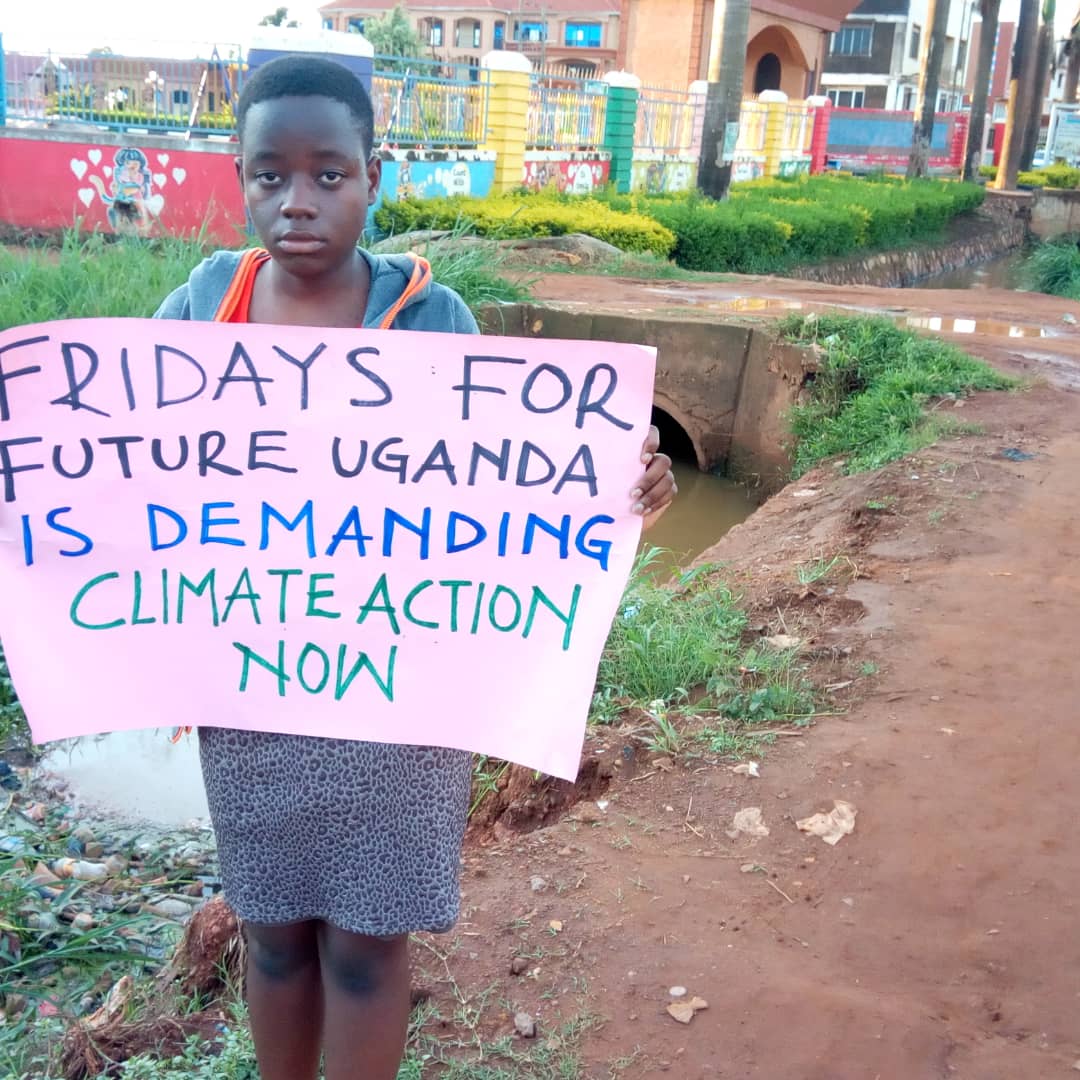 FRIDAYS FOR
FUTURE UGANDA
IS DEMANDING
CLIMATE ACTION
NOW